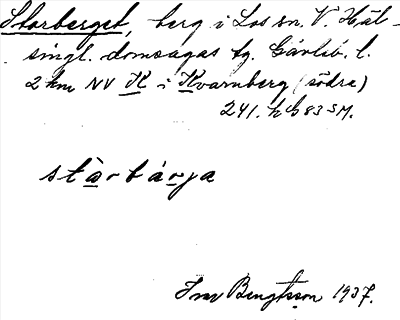 Storberget, berg i Los sn. V. Häl-
singl. domsagas tg. Gävleb. l.
2 km NV K i Kvarnberg (södra)
241. h b 83 SM.
stàrbárja
Ivar Bengtsson 1937.